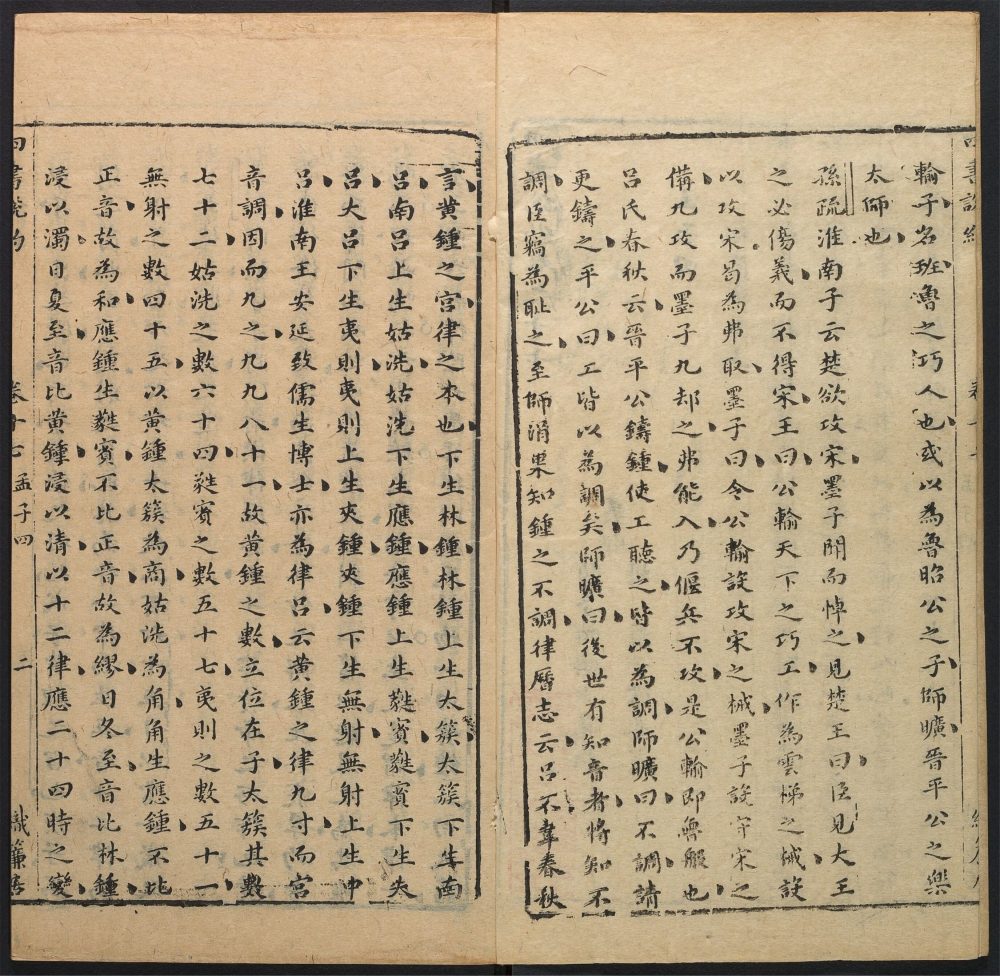 輪子名班魯之巧人也或以為魯昭公之子師曠晉平公之樂
太師也
孫疏淮南子云楚欲攻宋墨子聞而悼之見楚王曰臣見大王
之必傷義而不得宋王曰公輸天下之巧工作為雲梯之械設
以攻宋曷為弗取墨子曰令公輸設攻宋之械墨子設守宋之
備九攻而墨子九却之弗能入乃偃兵不攻是公輸即魯般也
呂氏春秋云晉平公鑄鍾使工聽之皆以為調師曠曰不調請
更鑄之平公曰工皆以為調矣師曠曰後世有知音者將知不
調臣竊為耻之至師涓果知鍾之不調律曆志云呂不韋春秋
言黃鍾之宮律之本也下生林鍾林鍾上生太簇太簇下生南
呂南呂上生姑洗姑洗下生應鍾應鍾上生蕤賓蕤賓下生夾
呂大呂下生夷則夷則上生夾鍾夾鍾下生無射無射上生中
呂淮南王安延致儒生博士亦為律呂云黃鍾之律九寸而宮
音調因而九之九九八十一故黃鍾之數立位在子太簇其數
七十二姑洗之數六十四蕤賓之數五十七夷則之數五十一
無射之數四十五以黃鍾太簇為商姑洗為角角生應鍾不比
正音故為和應鍾生蕤賓不比正音故為繆日冬至音比林鍾
浸以濁日夏至音比黃鍾浸以清以十二律應二十四時之變
四書說約 卷十七 孟子四 二 織簾居